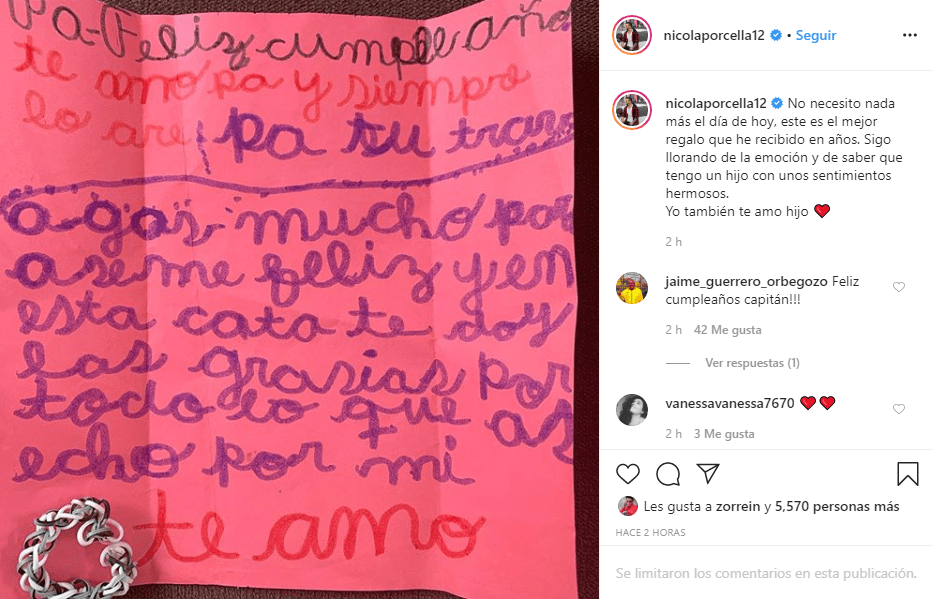 Pa-Feliz cumpleaño
te amo pa y siempre
lo are pa tu
a-gas mucho por
aseme feliz y en
esta cata te doy
las grasias por
todo lo que as
echo por mi
te amo
nicolaporcella12 • Seguir
nicolaporcella12 No necesito nada
más el día de hoy, este es el mejor
regalo que he recibido en años. Sigo
llorando de la emoción y de saber que
tengo un hijo con unos sentimientos
hermosos.
Yo también te amo hijo ❤
2 h
jaime_guerrero_orbegozo Feliz
cumpleaños capitán!!!
2 h 42 Me gusta
Ver respuestas (1)
vanessavanessa7670 ❤❤
2 h 3 Me gusta
Les gusta a zorrein y 5,570 personas más
HACE 2 HORAS
Se limitaron los comentarios en esta publicación.